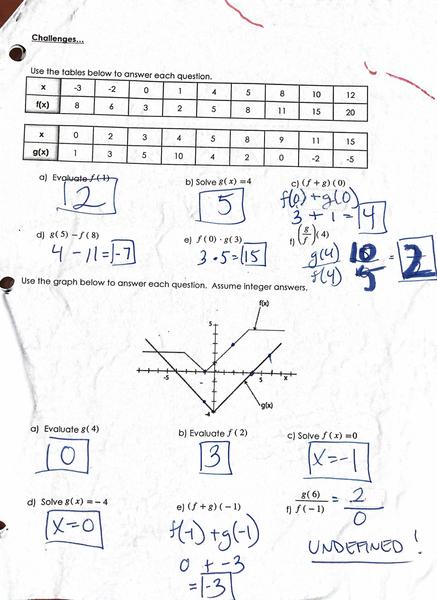 Challenges...
Use the tables below to answer each question.
x -3 -2 0 1 4 5 8 10 12
f(x) 8 6 3 2 5 8 11 15 20
x 0 2 3 4 5 8 9 11 15
g(x) 1 3 5 10 4 2 0 -2 -5
a) Evaluate f(1) b) Solve g(x) = 4 c) (f + g)(0)
2 5 f(0) + g(0)
3 + 1 = 4
d) g(5) - f(8) e) f(0) · g(3) f) (g/f)(4)
4 - 11 = -7 3 · 5 = 15 g(4)/f(4) 10/5 = 2
Use the graph below to answer each question. Assume integer answers.
f(x)
5
-5 5 x
-4
g(x)
a) Evaluate g(4) b) Evaluate f(2) c) Solve f(x) = 0
0 3 x = -1
d) Solve g(x) = -4 e) (f + g)(-1) f) g(6)/f(-1) = 2/0
x = 0 f(-1) + g(-1) UNDEFINED!
0 + -3
= -3